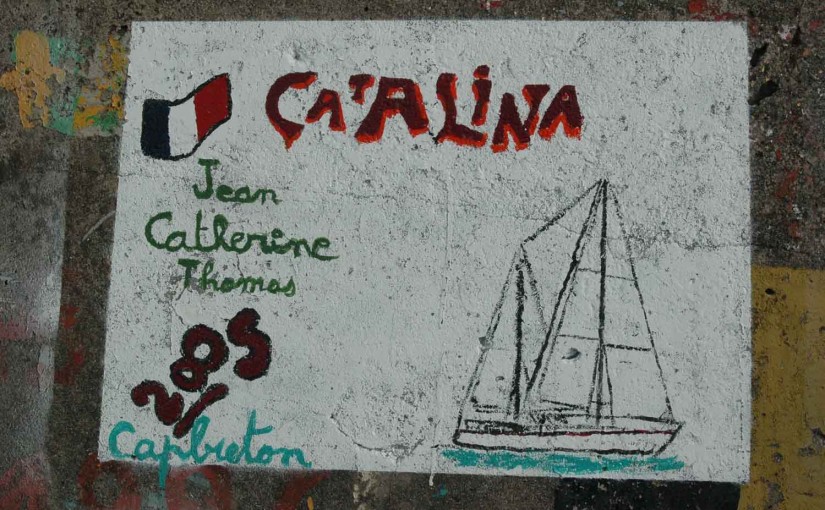 CATALiNA
Jean
Catherine
Thomas
Capbreton